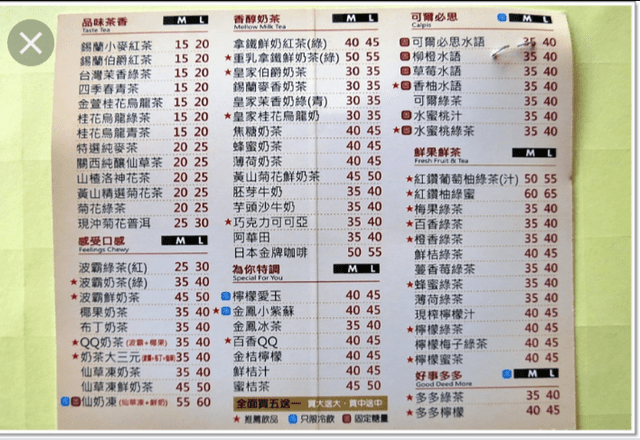 品味茶香 M L
Taste Tea
錫蘭小麥紅茶 15 20
錫蘭伯爵紅茶 15 20
台灣茉香綠茶 15 20
四季春青茶 15 20
金萱桂花烏龍茶 15 20
桂花烏龍綠茶 15 20
桂花烏龍青茶 15 20
特選純麥茶 20 25
關西純釀仙草茶 20 25
山楂洛神花茶 20 25
黃山精選菊花茶 20 25
菊花綠茶 20 25
現沖菊花普洱 25 30
感受口感 M L
Feelings Chewy
波霸綠茶(紅) 25 30
★波霸奶茶(綠) 35 40
★波霸鮮奶茶 45 50
椰果奶茶 35 40
布丁奶茶 35 40
★QQ奶茶(波霸+椰果) 35 40
★奶茶大三元 35 40
仙草凍奶茶 35 40
仙草凍鮮奶茶 45 50
仙奶凍(仙草凍+鮮奶) 55 60
香醇奶茶 M L
Mellow Milk Tea
拿鐵鮮奶紅茶(綠) 40 45
★重乳拿鐵鮮奶茶(綠) 50 55
★皇家伯爵奶茶 30 35
錫蘭麥香奶茶 30 35
皇家茉香奶綠(青) 30 35
★皇家桂花烏龍奶 30 35
焦糖奶茶 40 45
蜂蜜奶茶 40 45
薄荷奶茶 40 45
黃山菊花鮮奶茶 45 50
胚芽牛奶 35 40
芋頭沙牛奶 35 40
★巧克力可可亞 35 40
阿華田 35 40
日本金牌咖啡 50 55
為你特調 M L
Special For You
檸檬愛玉 40 45
★金鳳小紫蘇 40 45
金鳳冰茶 35 40
★百香QQ 40 45
金桔檸檬 40 45
鮮桔汁 40 45
蜜桔茶 45 50
全面買五送一 買大送大‧買中送中
★推薦飲品 冷 只限冷飲 固 固定糖量
可爾必思 冷 M L
Calpis
固 可爾必思水語 35 40
固 柳橙水語 35 40
固 草莓水語 35 40
★固 香柚水語 35 40
可爾綠茶 35 40
固 水蜜桃汁 35 40
★固 水蜜桃綠茶 35 40
鮮果鮮茶 M L
Fresh Fruit & Tea
★紅鑽葡萄柚綠茶(汁) 50 55
★紅鑽柚綠蜜 60 65
★梅果綠茶 35 40
★百香綠茶 35 40
★橙香綠茶 35 40
鮮桔綠茶 40 45
蔓香莓綠茶 35 40
★蜂蜜綠茶 35 40
薄荷綠茶 35 40
現榨檸檬汁 40 45
★檸檬綠茶 40 45
檸檬梅子綠茶 40 45
★檸檬蜜茶 40 45
好事多多 冷 M L
Good Deed More
★多多綠茶 35 40
★多多檸檬 40 45